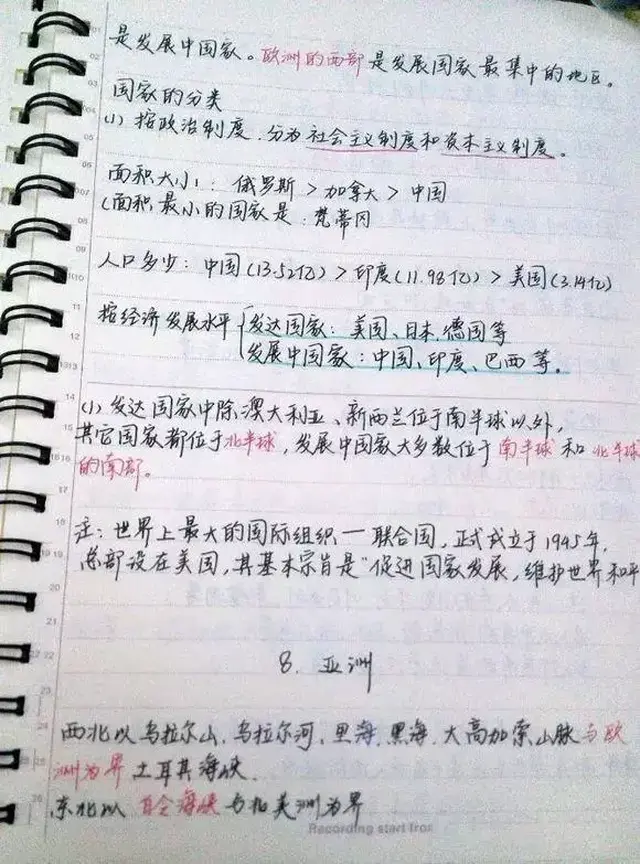 是发展中国家。欧洲的西部是发展国家最集中的地区。
国家的分类
(1) 按政治制度，分为社会主义制度和资本主义制度。
面积大小：俄罗斯 > 加拿大 > 中国
(面积最小的国家是：梵蒂冈
人口多少：中国(13.52亿) > 印度(11.98亿) > 美国(3.14亿)
按经济发展水平 { 发达国家：美国、日本、德国等
发展中国家：中国、印度、巴西等。
(1) 发达国家中除澳大利亚、新西兰位于南半球以外，
其它国家都位于北半球，发展中国家大多数位于南半球和北半球
的南部。
注：世界上最大的国际组织一联合国，正式成立于1945年，
总部设在美国，其基本宗旨是“促进国家发展，维护世界和平
8. 亚洲
西北以乌拉尔山、乌拉尔河、里海、黑海、大高加索山脉与欧
洲为界 土耳其海峡.
东北以 白令海峡 与北美洲为界
Recording start from